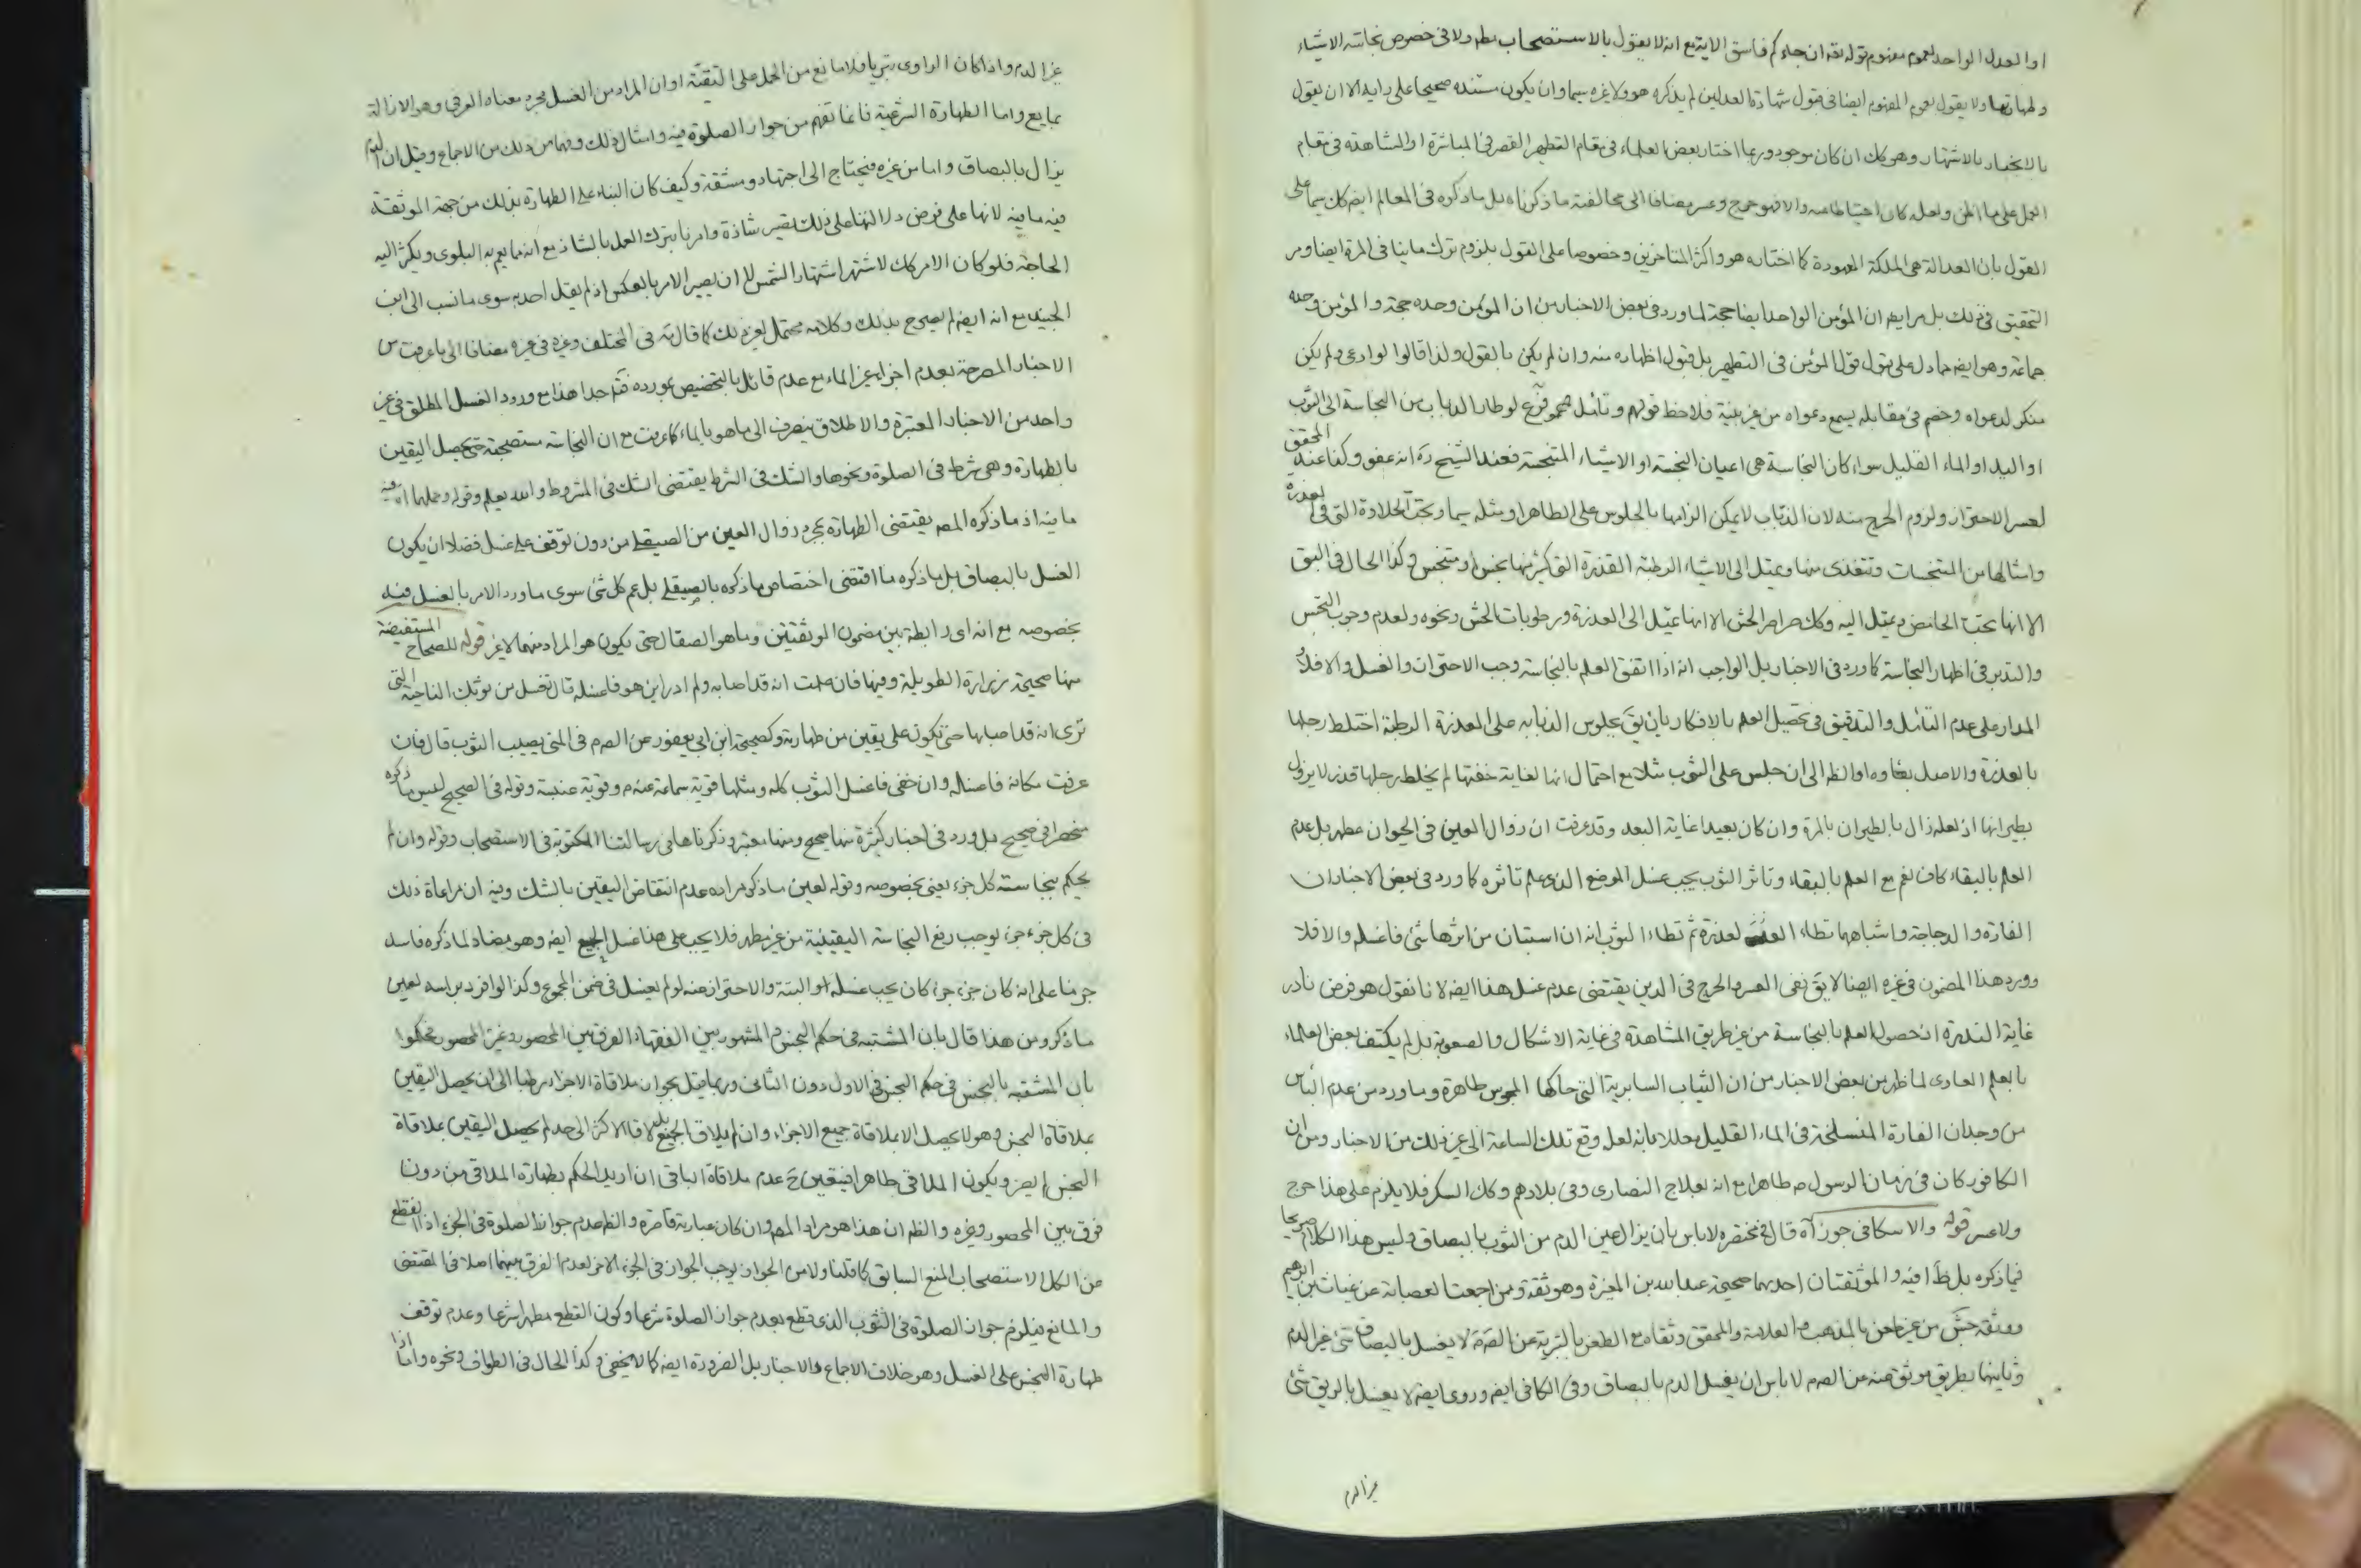 او العدل الواحد لعموم مفهوم قوله تعه ان جاءكم فاسق الاية مع انه لا يقول بالاستصحاب مطه ولا فى خصوص نجاسته الاشياء
وطهارتها ولا يقول بعموم المفهوم ايضا فى قبول شهادة العدلين لم يذكره هو ولا غيره سيما وان يكون مستنده صحيحا على رايه الا ان يقول
بالانجبار بالاشتهار وهو كك ان كان موجود وربما اختار بعض العلماء فى مقام التطهير القصر فى المباشرة او المشاهدة فى مقام
العمل على هذا الظن ولعله كان احتياطا منه والا فهو حرج وعسر مضافا الى مخالفته ما ذكرناه بل ما ذكره فى المعالم ايضه كك سيما على
القول بان العدالة هى الملكة المعهودة كما اختاره هو واكثر المتاخرين وخصوصا على القول بلزوم ترك ما ينافى المروة ايضا ومر
التحقيق فى ذلك بل مر ايضه ان المؤمن الواحد ايضا حجة لما ورد فى بعض الاخبار من ان المؤمن وحده حجة والمؤمن وحده
جماعة وهو ايضه مما دل على قبول قول المؤمن فى التطهير بل قبول اظهاره منه وان لم يكن بالقول ولذا قالوا لو ادعى ولم يكن
منكر لدعواه وخصم فى مقابله يسمع دعواه من غير بينة فلاحظ قولهم وتامل فرع لو طار الذباب من النجاسة الى الثوب
او اليد او الماء القليل سواء كان النجاسة هى اعيان النجسة او الاشياء المتنجسة فعند الشيخ ره انه عفو وكذا عند المحقق
لعسر الاحتراز ولزوم الحرج منه لان الذباب لا يمكن الزامها بالجلوس على الطاهر او مثله سيما وتحب الحلاوة التى فى العذرة
وامثالها من المتنجسات وتتغذى منها وتميل الى الاشياء الرطبة القذرة التى كثير منها نجس او متنجس وكذا الحال فى البق
الا انها تحب الحامض وتميل اليه وكك صراصر الحش الا انها تميل الى العذرة ورطوبات الحش ونحوه ولعدم وجوب التجسس
والتدبر فى اظهار النجاسة كما ورد فى الاخبار بل الواجب انه اذا اتفق العلم بالنجاسة وجب الاحتراز والغسل والا فلا و
المدار على عدم التامل والتدقيق فى تحصيل العلم بالافكار بان يق بجلوس الذبابه على العذرة الرطبة اختلط رجلها
بالعذرة والاصل بقاوه او الظه الى ان جلس على الثوب مثلا مع احتمال انها لغاية خفتها لم يخلط رجلها قذر لا يزول
بطيرانها اذ لعله زال بالطيران بالمرة وان كان بعيدا غاية البعد وقد عرفت ان زوال العين فى الحيوان مطهر بل عدم
العلم بالبقاء كاف نعم مع العلم بالبقاء وتاثر الثوب يجب غسل الموضع الذى علم تاثره كما ورد فى بعض الاخبار ان
الفارة والدجاجة واشباهها تطاء العذرة ثم تطاء الثوب انه ان استبان من اثرها شئ فاغسله والا فلا
وورد هذا المضمون فى غيره ايضا لا يق نفى العسر والحرج فى الدين يقتضى عدم غسل هذا ايضه لانا نقول هو فرض نادر
غاية الندرة اذ حصول العلم بالنجاسة من غير طريق المشاهدة فى غاية الاشكال والصعوبة بل لم يكتف بعض العلماء
بالعلم العادى لما ظهر من بعض الاخبار من ان الثياب السابرية التى حاكها المجوس طاهرة وما ورد من عدم الباس
من وجدان الفارة المنسلخة فى الماء القليل معللا بانه لعل وقع تلك الساعة الى غير ذلك من الاخبار ومن ان
الكافور كان فى زمان الرسول ص طاهرا مع انه بعلاج النصارى وفى بلادهم وكك السكر فلا يلزم على هذا حرج
ولا عسر قوله والاسكافى جوز آه قال فى مختصره لا باس بان يزال عين الدم من الثوب بالبصاق وليس هذا الكلام صريحا
فيما ذكره بل ظاهرا فيه والموثقتان احديهما صحيحة عبد الله بن المغيرة وهو ثقة وممن اجمعت العصابة عن غياث بن ابرهيم
ووثقه جش من غير طعن بالمذهب والعلامة والمحقق وثقاه مع الطعن بالتبرية عن الصه لا يغسل بالبصاق شئ غير الدم
وثانيتها بطريق موثق عنه عن الصه لا باس ان يغسل الدم بالبصاق وفى الكافى ايضه وروى ايضه لا يغسل بالريق شئ
غير الدم
غير الدم واذا كان الراوى بتريا فلا مانع من الحمل على التقية او ان المراد من الغسل مجرد معناه العرفى وهو الازالة
بمايع واما الطهارة الشرعية فانما تفهم من جواز الصلوة فيه وامثال ذلك وفهما من ذلك من الاجماع وقيل ان الدم
يزال بالبصاق واما من غيره فيحتاج الى اجتهاد ومشقة وكيف كان البناء على الطهارة بذلك من جهة الموثقة
فيه ما فيه لانها على فرض دلالتها على ذلك تصير شاذة وامرنا بترك العمل بالشاذ مع انه مما يعم به البلوى ويكثر اليه
الحاجة فلو كان الامر كك لاشتهر اشتهار الشمس لا ان يصير الامر بالعكس اذ لم يقل احد به سوى ما نسب الى ابن
الجنيد مع انه ايضه لم يصرح بذلك وكلامه محتمل لغير ذلك كما قال ته فى المختلف وغيره فى غيره مضافا الى ما عرفت من
الاخبار المصرحة بعدم اجزاء غير الماء مع عدم قائل بالتخصيص بمورده فتم جدا هذا مع ورود الغسل المطلق فى غير
واحد من الاخبار المعتبرة والاطلاق ينصرف الى ما هو بالماء كما عرفت مع ان النجاسة مستصحبة حتى يحصل اليقين
بالطهارة وهى شرط فى الصلوة ونحوها والشك فى الشرط يقتضى الشك فى المشروط والله يعلم قوله وحملها اه فيه
ما فيه اذ ما ذكره المصه يقتضى الطهارة بمجرد زوال العين من الصيقلى من دون توقف على غسل فضلا ان يكون
الغسل بالبصاق بل ما ذكره ما اقتضى اختصاص ما ذكره بالصيقلى بل عم كل شئ سوى ما ورد الامر بالغسل فيه
بخصوصه مع انه اى رابطة بين مضمون الموثقتين وما هو الصقال حتى يكون هو المراد منهما لا غير قوله للصحاح المستفيضة
منها صحيحة زرارة الطويلة وفيها فان علمت انه قد اصابه ولم ادر اين هو فاغسله قال تغسل من ثوبك الناحية التى
ترى انه قد اصابها حتى تكون على يقين من طهارته وكصحيحة ابن ابى يعفور عن الصه م فى المنى يصيب الثوب قال فان
عرفت مكانه فاغسله وان خفى فاغسل الثوب كله ومثلها قوية سماعة عنه م وقوية عنبسة وقوله فى الصحيح ليس ما ذكره
منحصرا فى صحيح بل ورد فى اخبار كثيرة منها صحيح ومنها معتبر وذكرناها فى رسالتنا المكتوبة فى الاستصحاب وقوله وان لم
يحكم بنجاسته كل جزء يعنى بخصوصه وقوله لعين ما ذكر مراده عدم انتقاض اليقين بالشك وفيه ان مراعاة ذلك
فى كل جزء جزء يوجب رفع النجاسة اليقينية من غير مطهر فلا يجب على هذا غسل الجميع ايضه وهو مضاد لما ذكره فاسد
جزمنا على انه كان جزء جزء كان يجب غسله او البتة والاحتراز عنه لو لم يغسل فى ضمن المجموع وكذا لو افرد براسه لعين
ما ذكر ومن هذا قال بان المشتبه فى حكم النجس والمشهور بين الفقهاء الفرق بين المحصور وغير المحصور فحكموا
بان المشتبه بالنجس فى حكم النجس فى الاول دون الثانى وربما قيل بجواز ملاقاة الاجزاء رطبا الى ان يحصل اليقين
بملاقاة النجس وهو لا يحصل الا بملاقاة جميع الاجزاء وان لم يلاق الجميع بل لاقا الاكثر الى حد لم يحصل اليقين بملاقاة
النجس ايضه ويكون الملاقى طاهرا فيتعين ح عدم ملاقاة الباقى ان اريد الحكم بطهارة الملاقى من دون
فرق بين المحصور وغيره والظه ان هذا هو مراد المصه وان كان عبارته قاصرة والظه عدم جواز الصلوة فى الجزء اذا انقطع
من الكل الاستصحاب المنع السابق كما قلنا ولان الجواز يوجب الجواز فى الجزء الاخر لعدم الفرق بينهما اصلا فى المقتضى
والمانع فيلزم جواز الصلوة فى الثوب الذى قطع بعدم جواز الصلوة شرعا وكون القطع مطهرا شرعا وعدم توقف
طهارة النجس على الغسل وهو خلاف الاجماع والاخبار بل الضرورة ايضه كما لا يخفى وكذا الحال فى الطواف ونحوه واما اذا